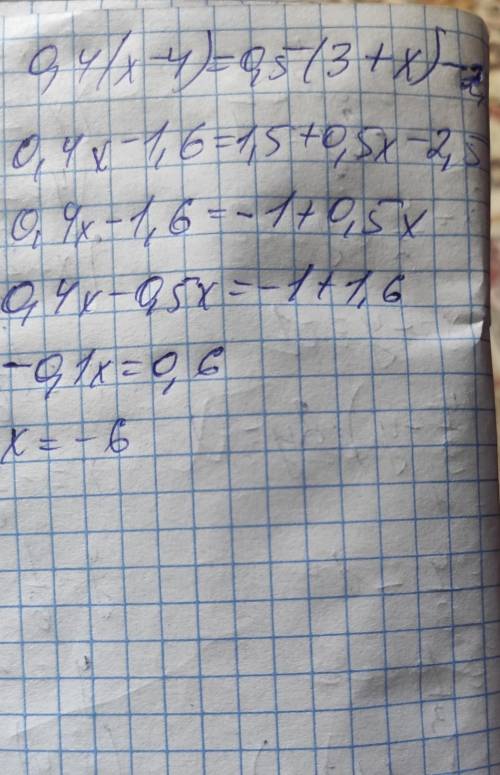 0,4(x-4)=0,5(3+x)-2,
0,4x-1,6=1,5+0,5x-2,5
0,4x-1,6=-1+0,5x
0,4x-0,5x=-1+1,6
-0,1x=0,6
x=-6